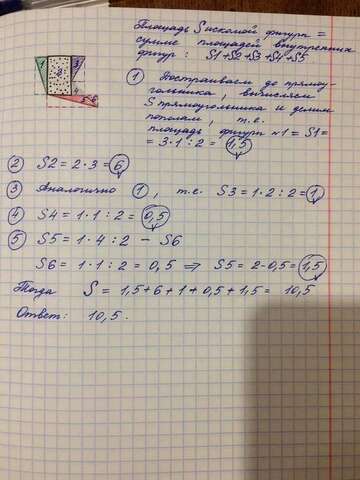 Площадь S искомой фигуры =
сумме площадей внутренних
фигур : S1+S2+S3+S4+S5
1 2 3
4
5 6
① Достраиваем до прямоу-
гольника, вычисляем
S прямоугольника и делим
пополам, т.е.
площадь фигуры №1 = S1 =
= 3·1:2 = 1,5
② S2 = 2·3 = 6
③ Аналогично ①, т.е. S3 = 1·2:2 = 1
④ S4 = 1·1:2 = 0,5
⑤ S5 = 1·4:2 - S6
S6 = 1·1:2 = 0,5 ⇒ S5 = 2-0,5 = 1,5
Тогда S = 1,5+6+1+0,5+1,5 = 10,5
Ответ: 10,5.